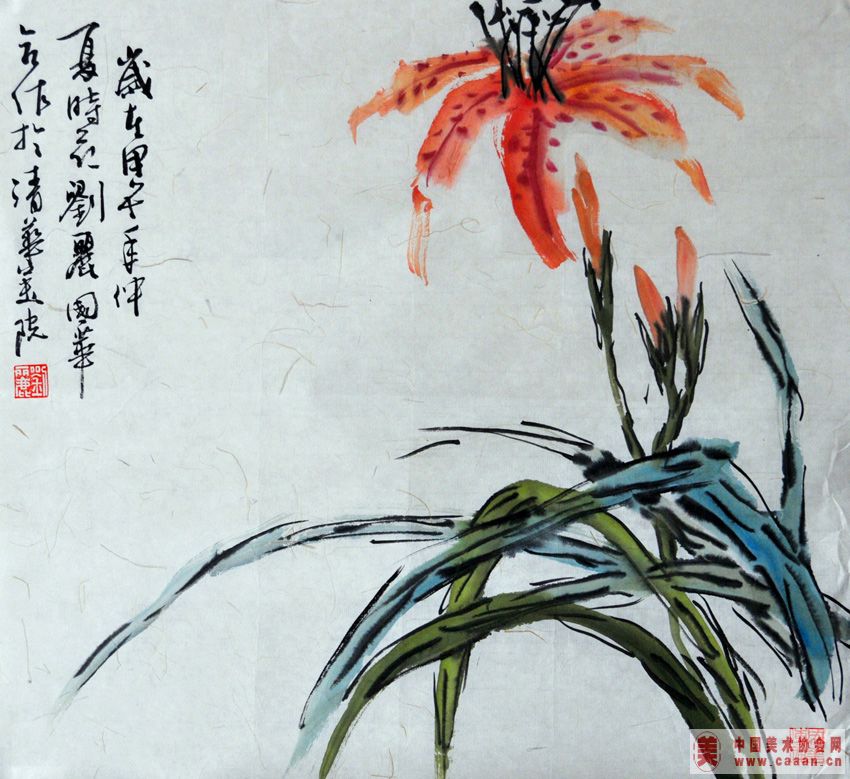 歲在甲午年仲
夏時花劉麗國華
合作於清華美院
劉麗
美
中国美术协会网
www.caaan.cn